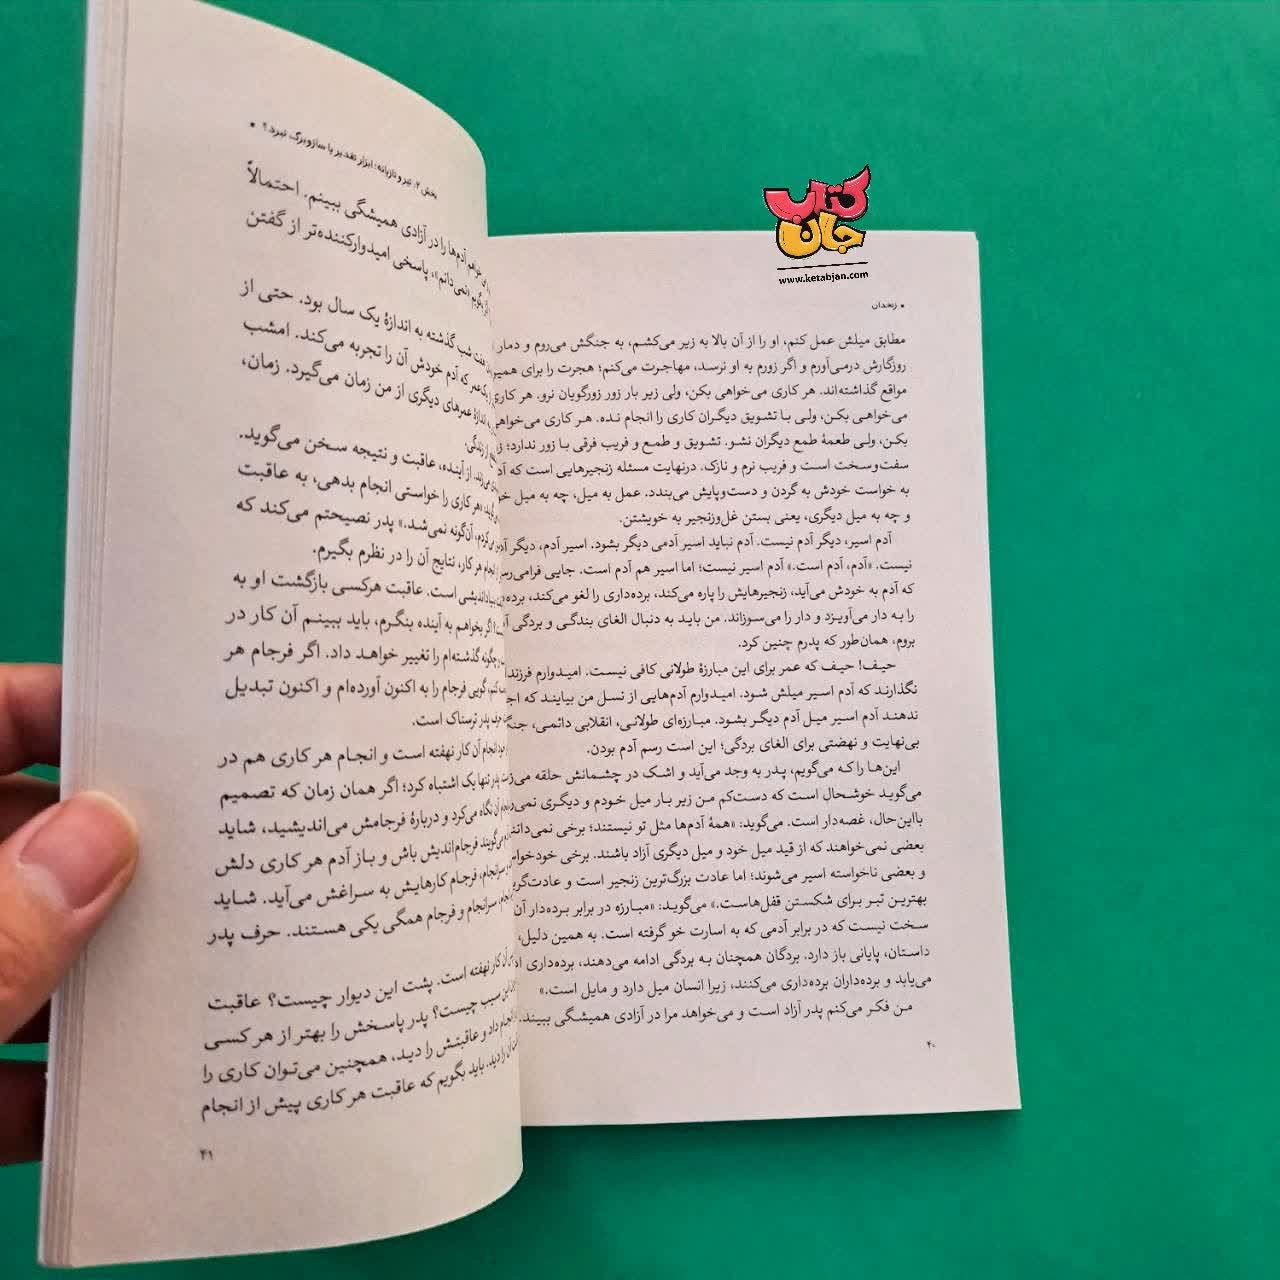 کتاب
جان
www.ketabjan.com
• زنخدان
مطابق میلش عمل کنم، او را از آن بالا به زیر می‌کشم، به جنگش می‌روم و دمار
روزگارش درمی‌آورم و اگر زورم به او نرسد، مهاجرت می‌کنم؛ هجرت را برای همین
مواقع گذاشته‌اند. هر کاری می‌خواهی بکن، ولی زیر بار زور زورگویان نرو. هر کاری
می‌خواهی بکن، ولی با تشویق دیگران کاری را انجام نده. هر کاری می‌خواهی
بکن، ولی طعمهٔ طمع دیگران نشو. تشویق و طمع و فریب فرقی با زور ندارد؛
سفت‌وسخت است و فریب نرم و نازک. درنهایت مسئله زنجیرهایی است که
به خواست خودش به گردن و دست‌وپایش می‌بندد. عمل به میل، چه به میل
و چه به میل دیگری، یعنی بستن غل‌وزنجیر به خویشتن.
آدم اسیر، دیگر آدم نیست. آدم نباید اسیر آدمی دیگر بشود. اسیر آدم، دیگر
نیست. «آدم، آدم است.» آدم اسیر نیست؛ اما اسیر هم آدم است. جایی
که آدم به خودش می‌آید، زنجیرهایش را پاره می‌کند، برده‌داری را لغو می‌کند،
را به دار می‌آویزد و دار را می‌سوزاند. من باید به دنبال الغای بندگی و بردگی
بروم، همان‌طور که پدرم چنین کرد.
حیف! حیف که عمر برای این مبارزهٔ طولانی کافی نیست. امیدوارم
نگذارند که آدم اسیر میلش شود. امیدوارم آدم‌هایی از نسل من بیایند که
ندهند آدم اسیر میل آدم دیگر بشود. مبارزه‌ای طولانی، انقلابی دائمی،
بی‌نهایت و نهضتی برای الغای بردگی؛ این است رسم آدم بودن.
این‌ها را که می‌گویم، پدر به وجد می‌آید و اشک در چشمانش حلقه
می‌گوید خوشحال است که دست‌کم من زیر بار میل خودم و دیگری
بااین‌حال، غصه‌دار است. می‌گوید: «همهٔ آدم‌ها مثل تو نیستند؛ برخی
بعضی نمی‌خواهند که از قید میل خود و میل دیگری آزاد باشند. برخی
و بعضی ناخواسته اسیر می‌شوند؛ اما عادت بزرگ‌ترین زنجیر است و
بهترین تبر برای شکستن قفل‌هاست.» می‌گوید: «مبارزه در برابر برده‌دار آن
سخت نیست که در برابر آدمی که به اسارت خو گرفته است. به همین دلیل،
داستان، پایانی باز دارد. بردگان همچنان به بردگی ادامه می‌دهند، برده‌داری
می‌یابد و برده‌داران برده‌داری می‌کنند، زیرا انسان میل دارد و مایل است.»
من فکر می‌کنم پدر آزاد است و می‌خواهد مرا در آزادی همیشگی ببیند.
۴۰
بخش ۲: تیر و تازیانه؛ ابزار تقدیر یا سازوبرگ نبرد؟ •
آدم‌ها را در آزادی همیشگی ببینم. احتمالاً
«نمی‌دانم»، پاسخی امیدوارکننده‌تر از گفتن
هفت شب گذشته به اندازهٔ یک سال بود. حتی از
که آدم خودش آن را تجربه می‌کند. امشب
اندازهٔ عمرهای دیگری از من زمان می‌گیرد. زمان،
از زندگی.
از آینده، عاقبت و نتیجه سخن می‌گوید.
«هر کاری را خواستی انجام بدهی، به عاقبت
آن‌گونه نمی‌شد.» پدر نصیحتم می‌کند که
انجام هر کار، نتایج آن را در نظرم بگیرم.
است. عاقبت هرکسی بازگشت او به
اگر بخواهم به آینده بنگرم، باید ببینم آن کار در
چگونه گذشته‌ام را تغییر خواهد داد. اگر فرجام هر
گویی فرجام را به اکنون آورده‌ام و اکنون تبدیل
حرف پدر ترسناک است.
انجام آن کار نهفته است و انجام هر کاری هم در
پدر تنها یک اشتباه کرد؛ اگر همان زمان که تصمیم
آن نگاه می‌کرد و دربارهٔ فرجامش می‌اندیشید، شاید
می‌گویند فرجام‌اندیش باش و باز آدم هر کاری دلش
سرانجام، فرجام کارهایش به سراغش می‌آید. شاید
سرانجام و فرجام همگی یکی هستند. حرف پدر
آن کار نهفته است. پشت این دیوار چیست؟ عاقبت
این سبب چیست؟ پدر پاسخش را بهتر از هر کسی
انجام داد و عاقبتش را دید، همچنین می‌توان کاری را
را دید. باید بگویم که عاقبت هر کاری پیش از انجام
۴۱